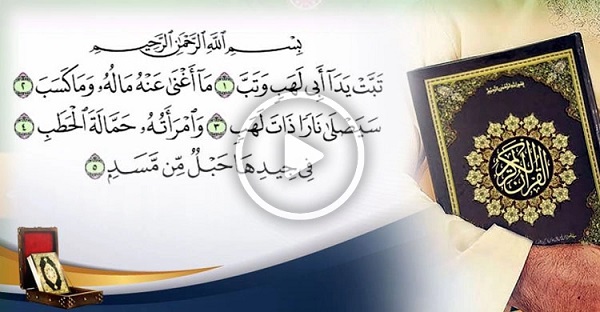 بِسْمِ ٱللَّهِ ٱلرَّحْمَٰنِ ٱلرَّحِيمِ
تَبَّتْ يَدَآ أَبِي لَهَبٍ وَتَبَّ ١ مَآ أَغْنَىٰ عَنْهُ مَالُهُۥ وَمَا كَسَبَ ٢
سَيَصْلَىٰ نَارًا ذَاتَ لَهَبٍ ٣ وَٱمْرَأَتُهُۥ حَمَّالَةَ ٱلْحَطَبِ ٤
فِي جِيدِهَا حَبْلٌ مِّن مَّسَدٍ ٥
القرآن الكريم